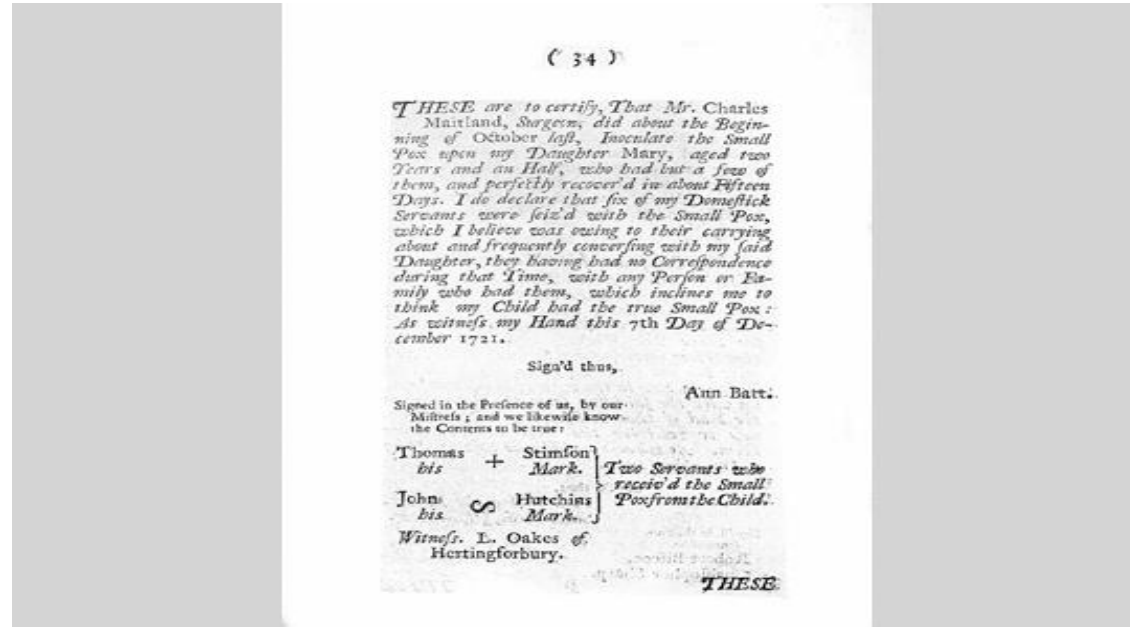 ( 34 )
THESE are to certify, That Mr. Charles
Maitland, Surgeon, did about the Begin-
ning of October laſt, Inoculate the Small
Pox upon my Daughter Mary, aged two
Years and an Half, who had but a few of
them, and perfectly recover'd in about Fifteen
Days. I do declare that ſix of my Domeſtick
Servants were ſeiz'd with the Small Pox,
which I believe was owing to their carrying
about and frequently converſing with my ſaid
Daughter, they having had no Correſpondence
during that Time, with any Perſon or Fa-
mily who had them, which inclines me to
think my Child had the true Small Pox:
As witneſs my Hand this 7th Day of De-
cember 1721.
Sign'd thus,
Ann Batt.
Signed in the Preſence of us, by our
Miſtreſs; and we likewiſe know
the Contents to be true:
Thomas + Stimſon
his Mark.
John S Hutchins
his Mark.
Two Servants who
receiv'd the Small
Pox from the Child.
Witneſs. L. Oakes of
Hertingforbury.
THESE